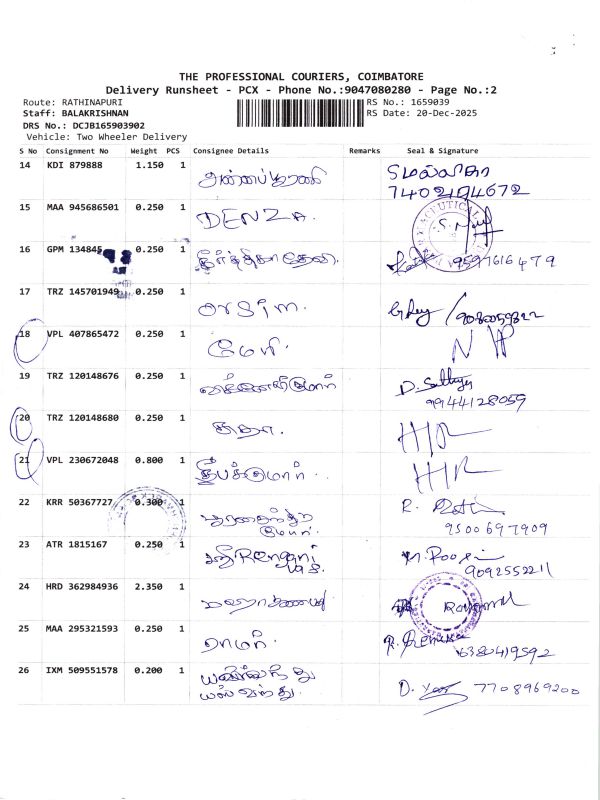 THE PROFESSIONAL COURIERS, COIMBATORE
Delivery Runsheet - PCX - Phone No.:9047080280 - Page No.:2
Route: RATHINAPURI
RS No.: 1659039
Staff: BALAKRISHNAN
RS Date: 20-Dec-2025
DRS No.: DCJB165903902
Vehicle: Two Wheeler Delivery
S No Consignment No Weight PCS Consignee Details Remarks Seal & Signature
14 KDI 879888 1.150 1
7402194672
15 MAA 945686501 0.250 1 DENZA.
16 GPM 134845 0.250 1 கீர்த்திகா தேவி. 9597616479
17 TRZ 145701949 0.250 1 orsim.
18 VPL 407865472 0.250 1 மேரி.
19 TRZ 120148676 0.250 1 D.
9944128059
20 TRZ 120148680 0.250 1 சுதா.
21 VPL 230672048 0.800 1 தீபக்குமார்.
22 KRR 50367727 0.300 1 R.
9500697909
23 ATR 1815167 0.250 1
9092552211
24 HRD 362984936 2.350 1
25 MAA 295321593 0.250 1 ராமர்.
6380419592
26 IXM 509551578 0.200 1
D. 7708969200